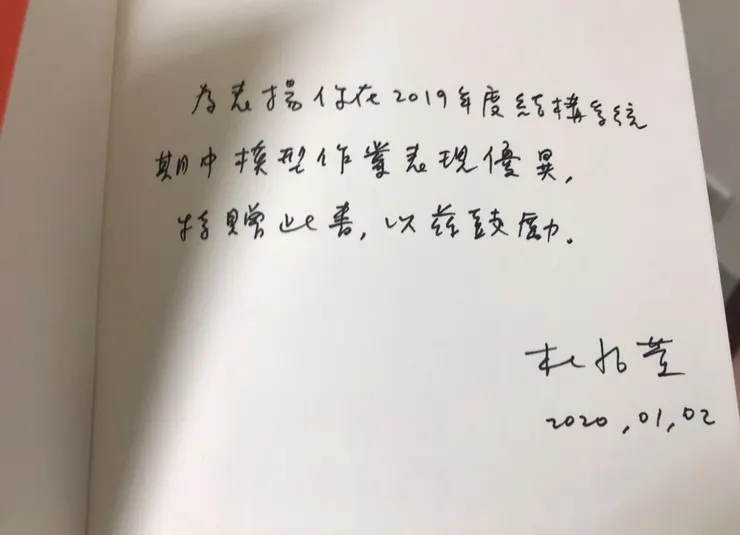 為表揚你在2019年度結構系統
期中模型作業表現優異,
特贈此書,以茲鼓勵。
杜怡萱
2020,01,02